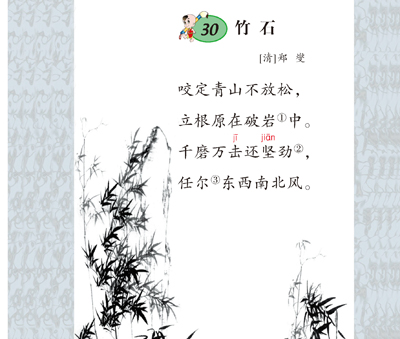 30 竹石
[清]郑 燮
咬定青山不放松，
立根原在破岩①中。
jī jiān
千磨万击还坚劲②，
任尔③东西南北风。